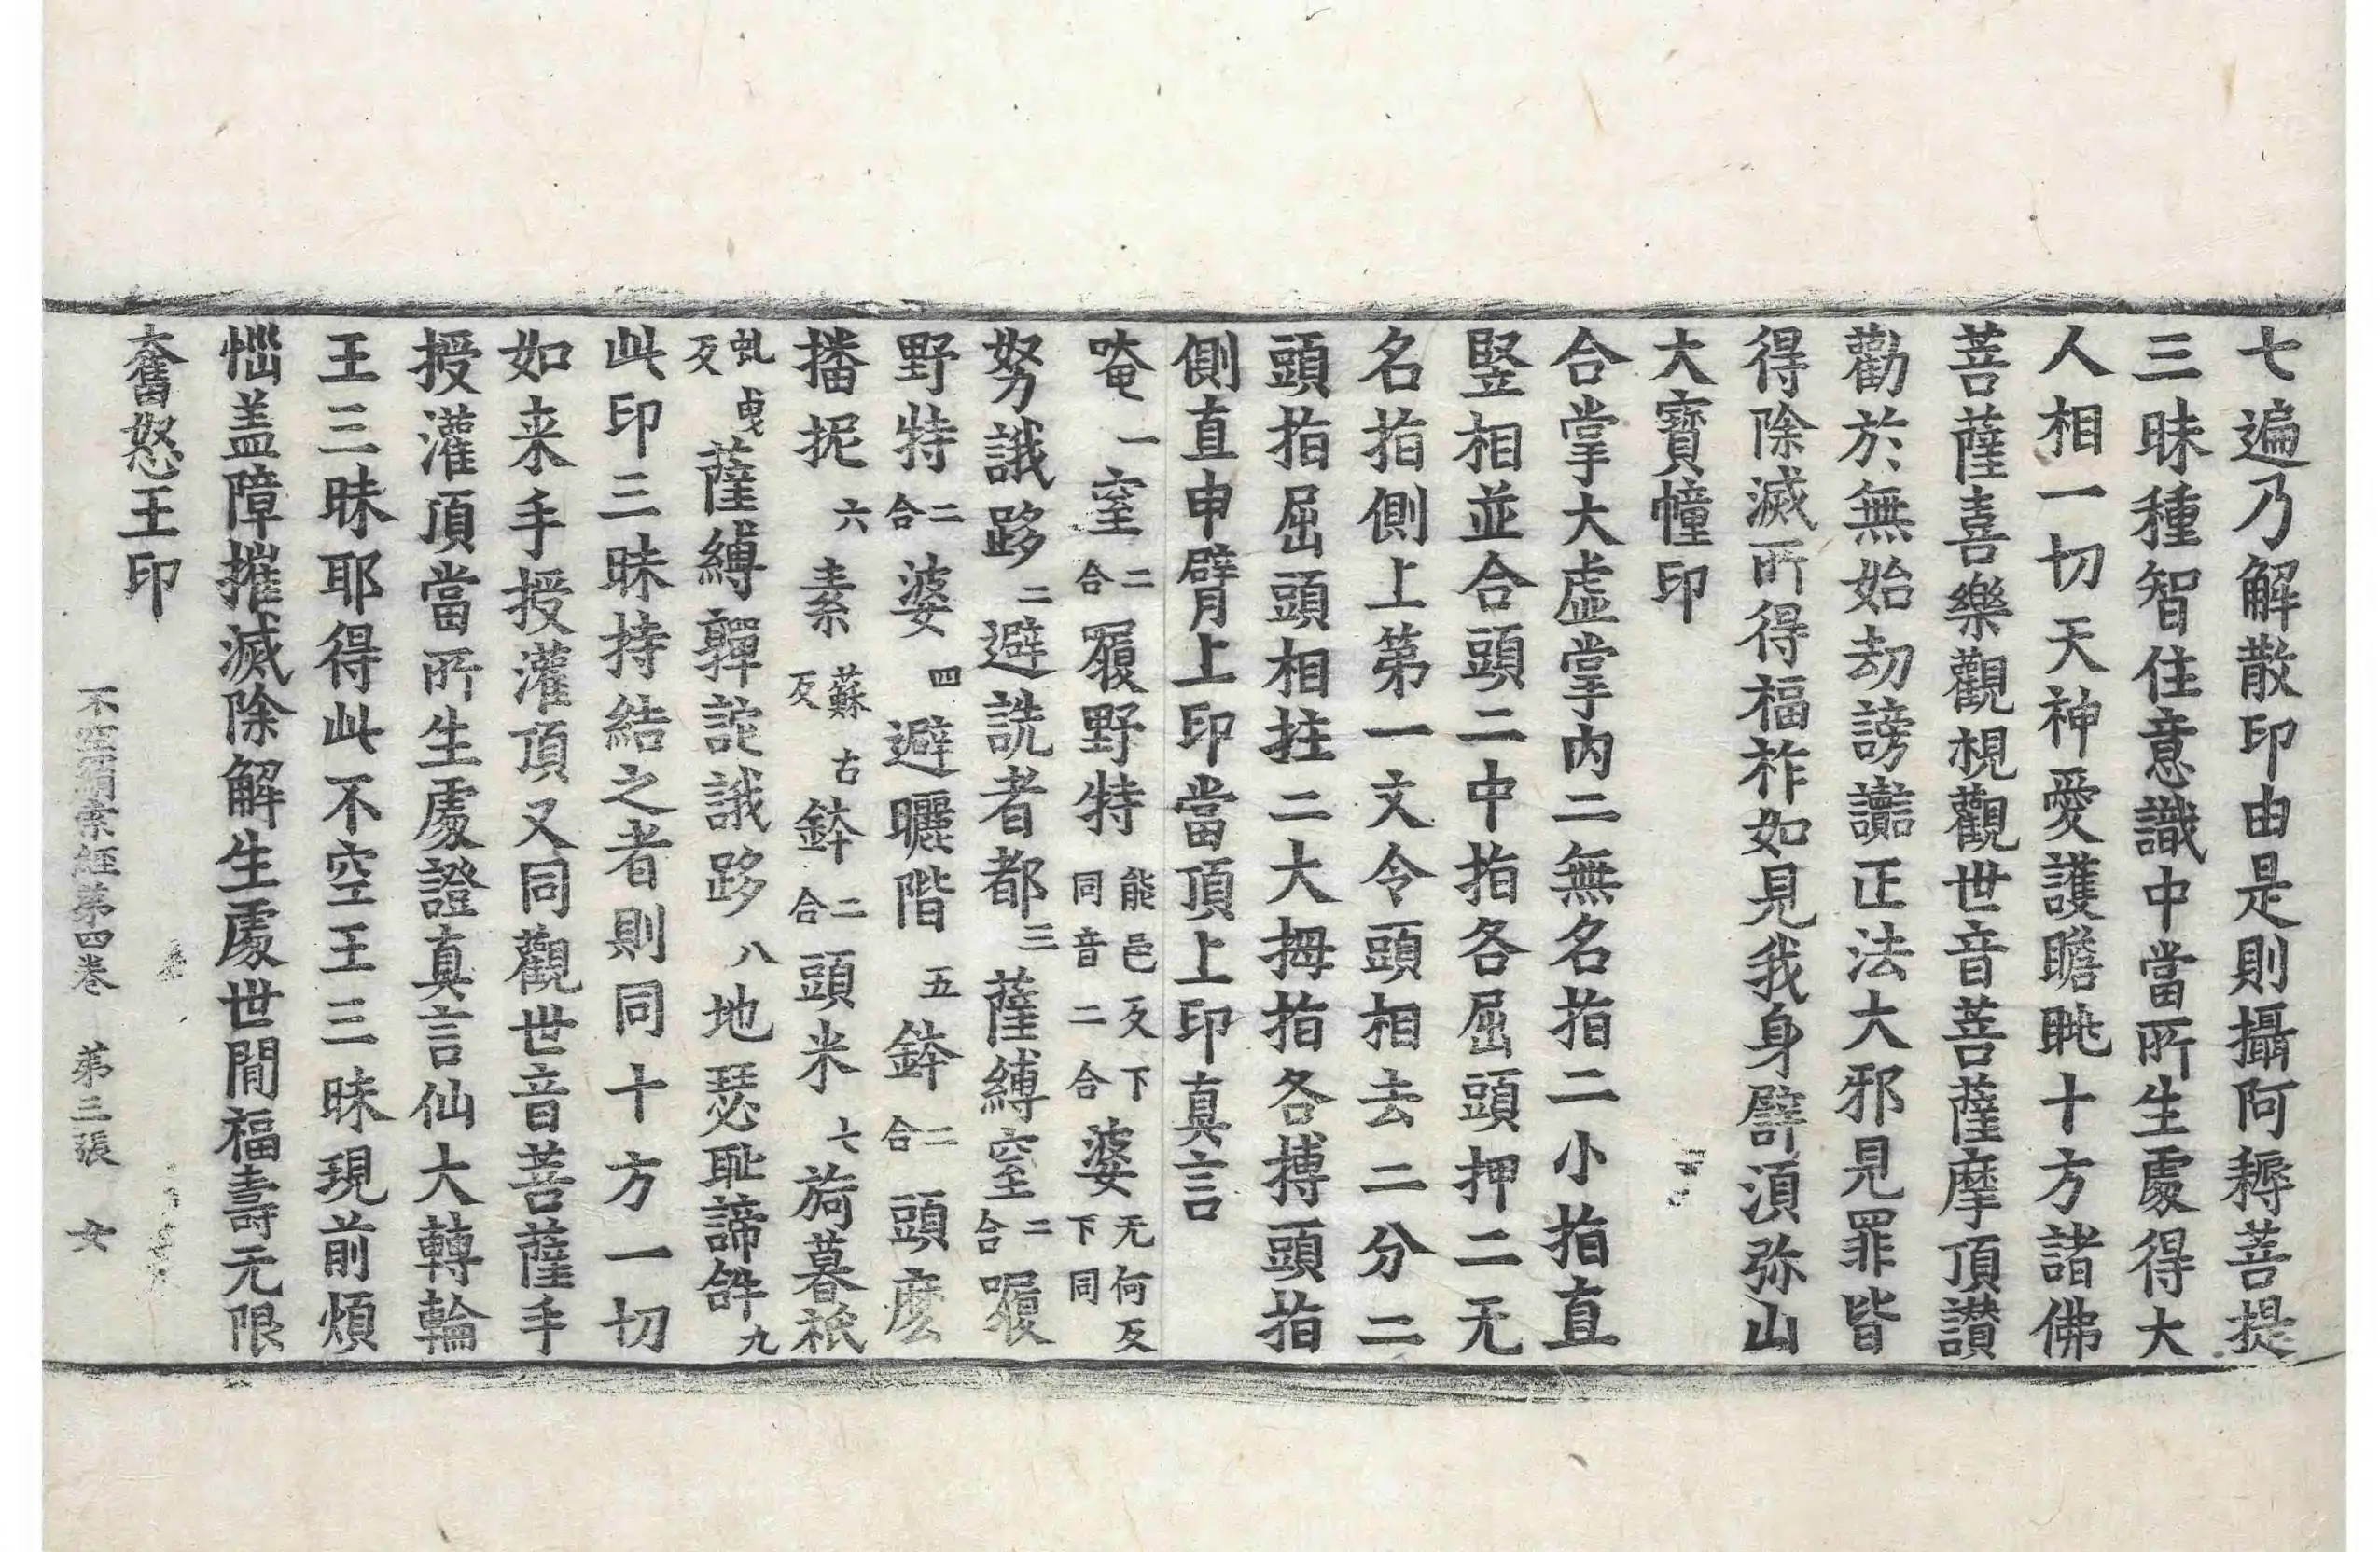 七遍乃解散印由是則攝阿耨菩提
三昧種智住意識中當所生處得大
人相一切天神愛護瞻眺十方諸佛
菩薩喜樂觀視觀世音菩薩摩頂讃
勸於無始劫謗讟正法大邪見罪皆
得除滅所得福祚如見我身臂湏弥山
大寶幢印
合掌大虛掌內二無名指二小指直
竪相並合頭二中指各屈頭押二无
名指側上第一文令頭相去二分二
頭指屈頭相拄二大拇指各搏頭指
側直申臂上印當頂上印真言
唵一窒二合履野特能邑反下同音二合婆无何反下同
努誐跢二避詵者都三薩縛窒二合履
野特二合婆四避曬階五鉢二合頭麽
播抳六素蘇古反鉢二合頭米七旖暮祇
虬曳反薩縛嚲詑誐跢八地瑟耻諦䤈九
此印三昧持結之者則同十方一切
如来手授灌頂又同觀世音菩薩手
授灌頂當所生處證真言仙大轉輪
王三昧耶得此不空王三昧現前煩
惱盖障摧滅除解生處世間福壽无限
奮怒王印
不空羂索經第四卷 第三張 女